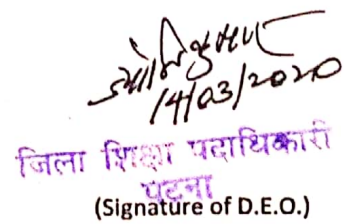 14/03/2020
जिला शिक्षा पदाधिकारी
पटना
(Signature of D.E.O.)